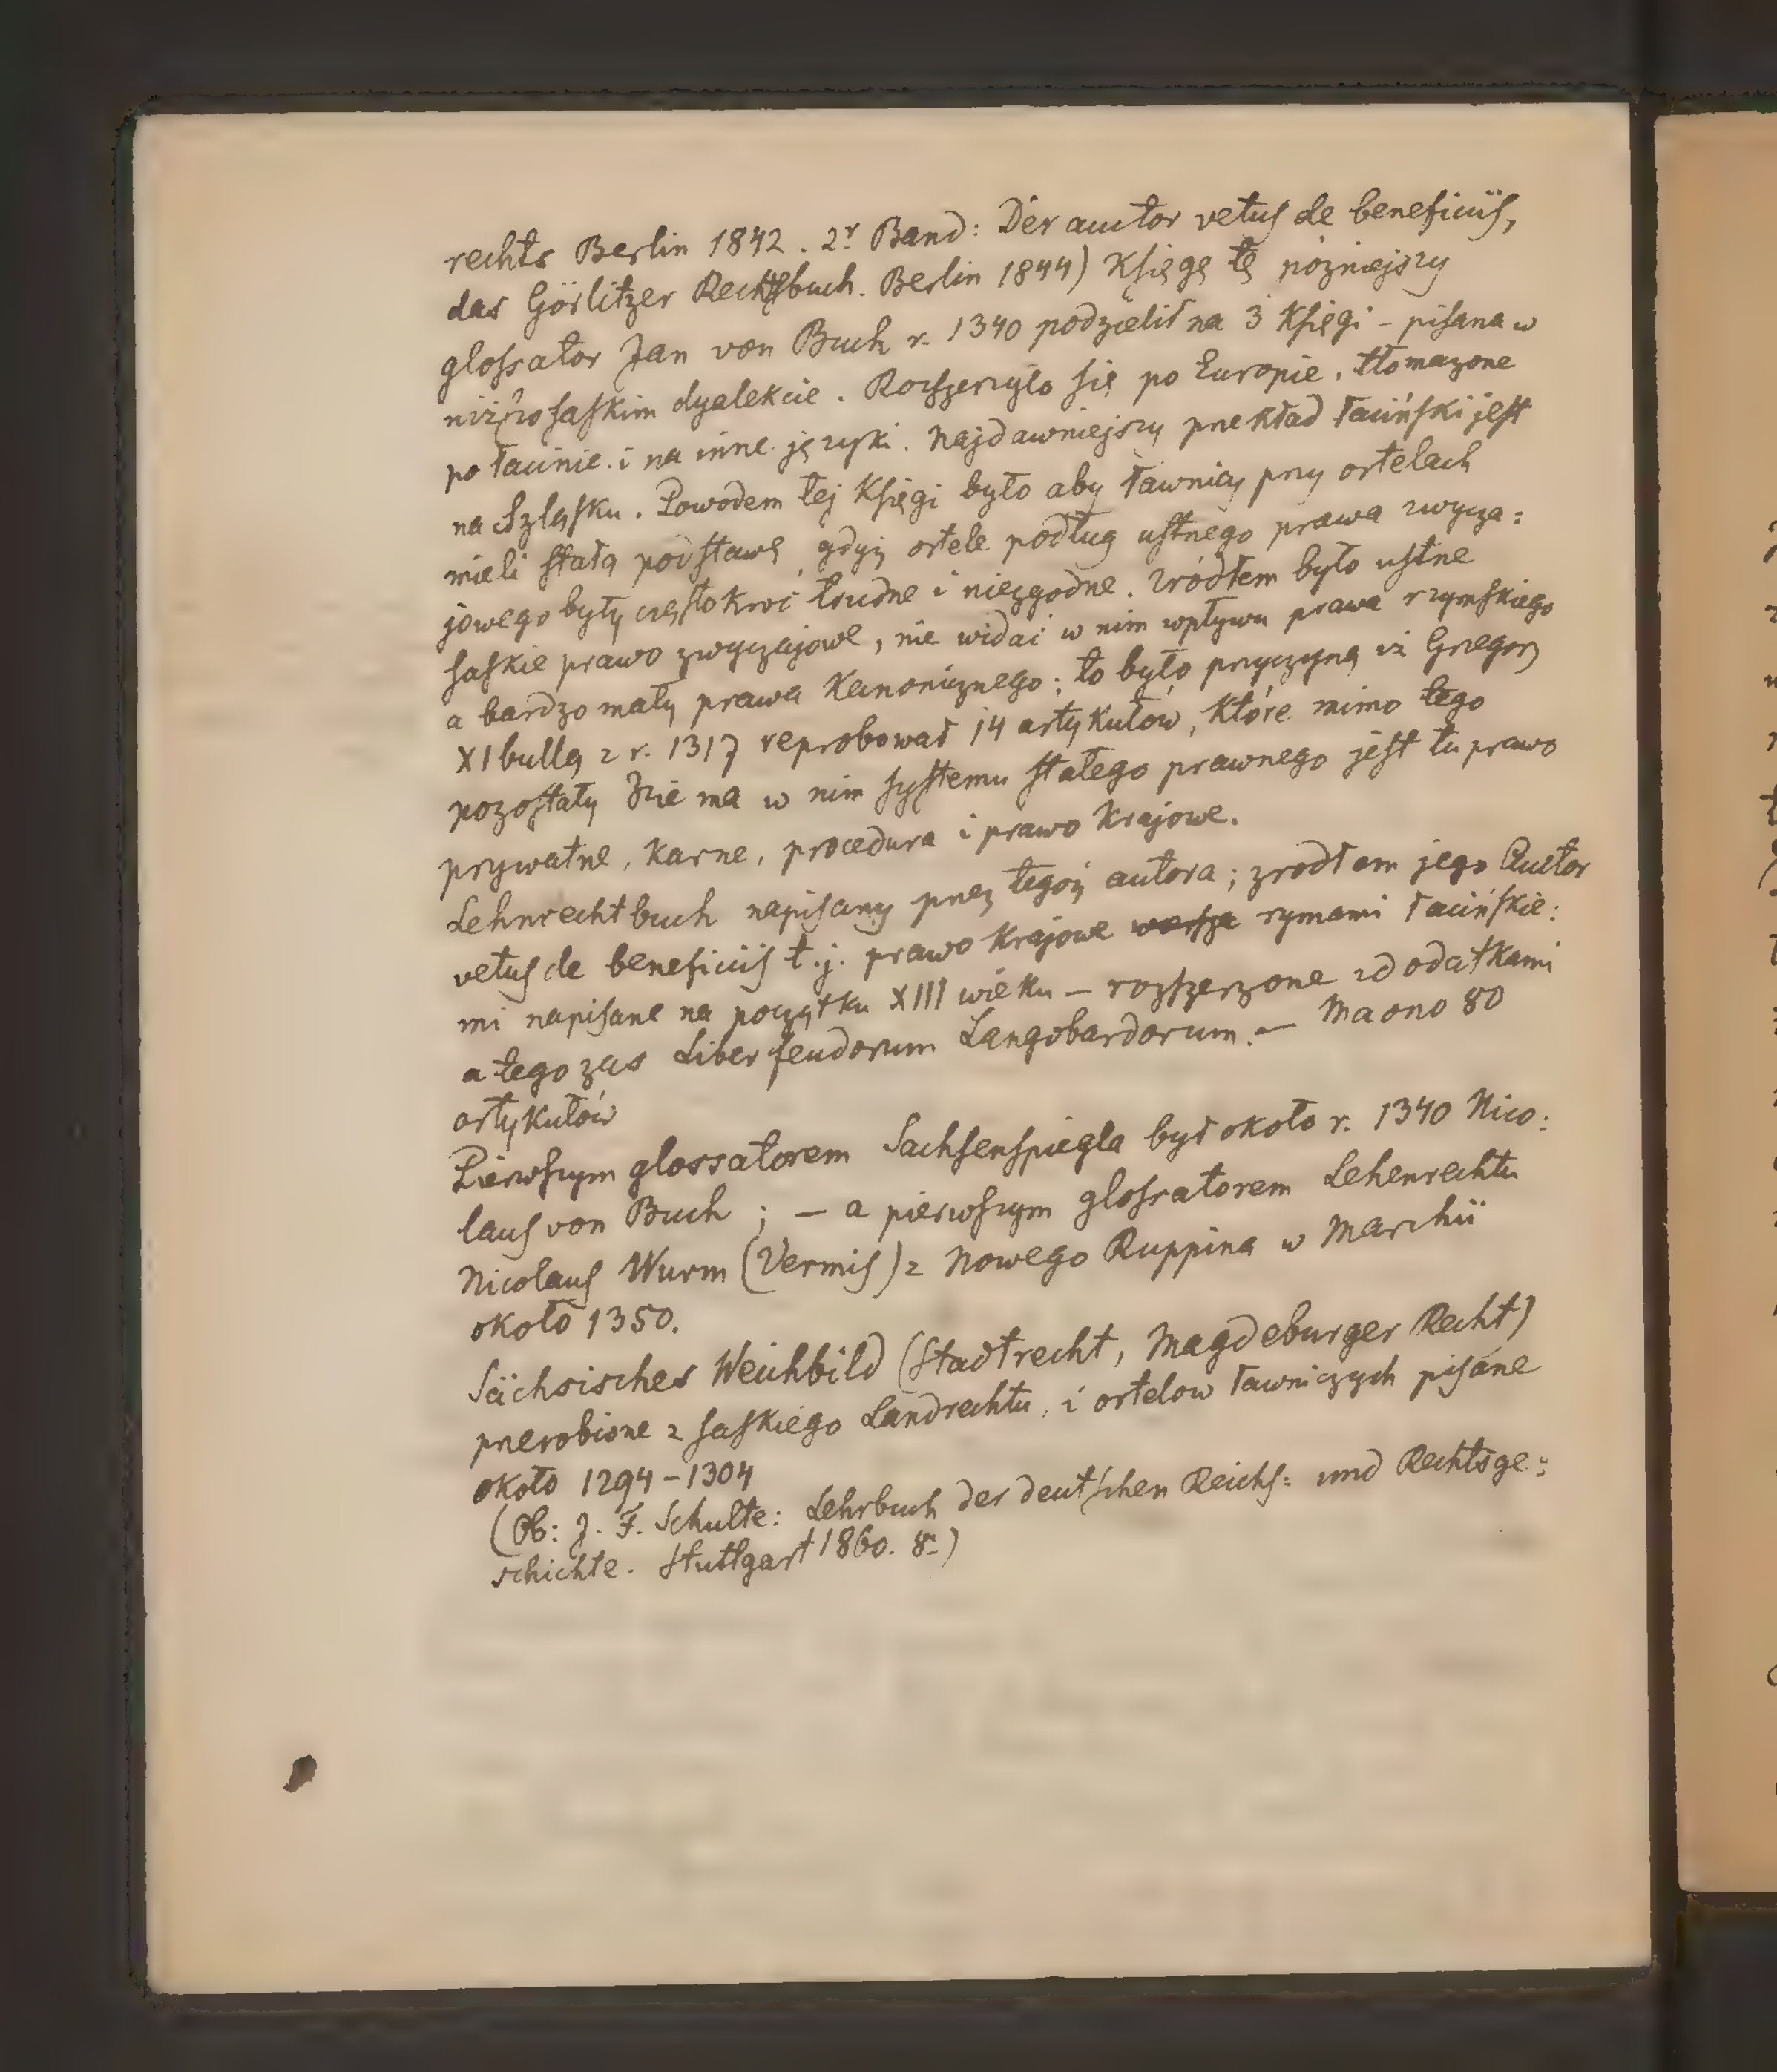 rechts Berlin 1842. 2r Band: Der auctor vetus de beneficiis,
das Görlitzer Rechtsbuch. Berlin 1844) Księgę tę pozniejszy
glossator Jan von Buch r. 1340 podzielił na 3 Księgi – pisana w
niższosaskim dyalekcie. Rozszerzyło się po Europie. tłomazone
po łacinie i na inne języki. Najdawniejszy przekład łaciński jest
na Szląsku. Powodem tej Księgi było aby ławnicy przy ortelach
mieli stałą podstawę, gdyż ortele podług ustnego prawa zwycza=
jowego były częstokroć trudne i niezgodne. Zródłem było ustne
saskie prawo zwyczajowe, nie widać w nim wpływu prawa rzymskiego
a bardzo mały prawa Kanonicznego; to było przyczyną iż Grzegorz
XI bullą z r. 1317 reprobował 14 artykułów, które mimo tego
pozostały Nie ma w nim systemu stałego prawnego jest tu prawo
prywatne, Karne, procedura i prawo Krajowe.
Lehnrechtbuch napisany przez tegoż autora; zrodłem jego Auctor
vetus de beneficiis t.j. prawo Krajowe rymami łacińskie=
mi napisane na początku XIII wieku – rozszerzone z dodatkami
a tego zas Liber feudorum Langobardorum. – Ma ono 80
artykułów
Pierwszym glossatorem Sachsenspiegla był około r. 1340 Nico=
laus von Buch; – a pierwszym glossatorem Lehenrechtu
Nicolaus Wurm (Vermis) z Nowego Ruppina w Marchii
około 1350.
Sächsisches Weichbild (Stadtrecht, Magdeburger Recht)
przerobione z saskiego Landrechtu, i ortelow ławniczych pisane
około 1294–1304
(Ob: J. F. Schulte: Lehrbuch der deutschen Reichs= und Rechtsge=
schichte. Stuttgart 1860. 8.)